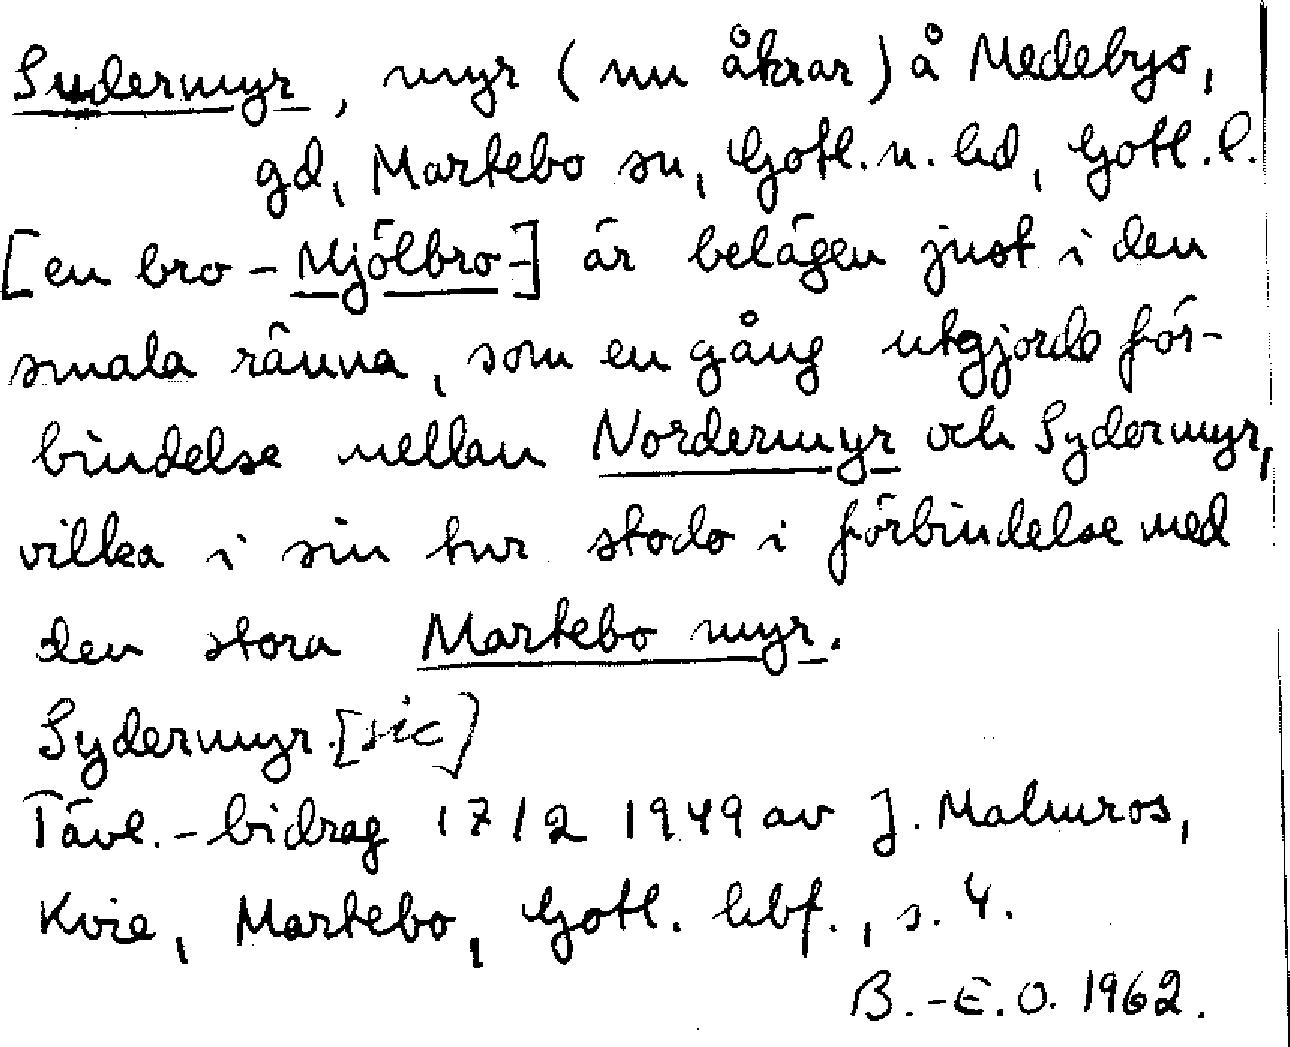 Sudermyr, myr (nu åkrar) å Medebys,
gd, Martebo sn, Gotl. n. hd, Gotl. l.
[en bro – Mjölbro –] är belägen just i den
smala ränna, som en gång utgjorde för-
bindelse mellan Nordermyr och Sydermyr,
vilka i sin tur stodo i förbindelse med
den stora Martebo myr.
Sydermyr. [sic]
Tävl.-bidrag 17/2 1949 av J. Malmros,
Kvie, Martebo, Gotl. hbf., s. 4.
B.-E.O. 1962.